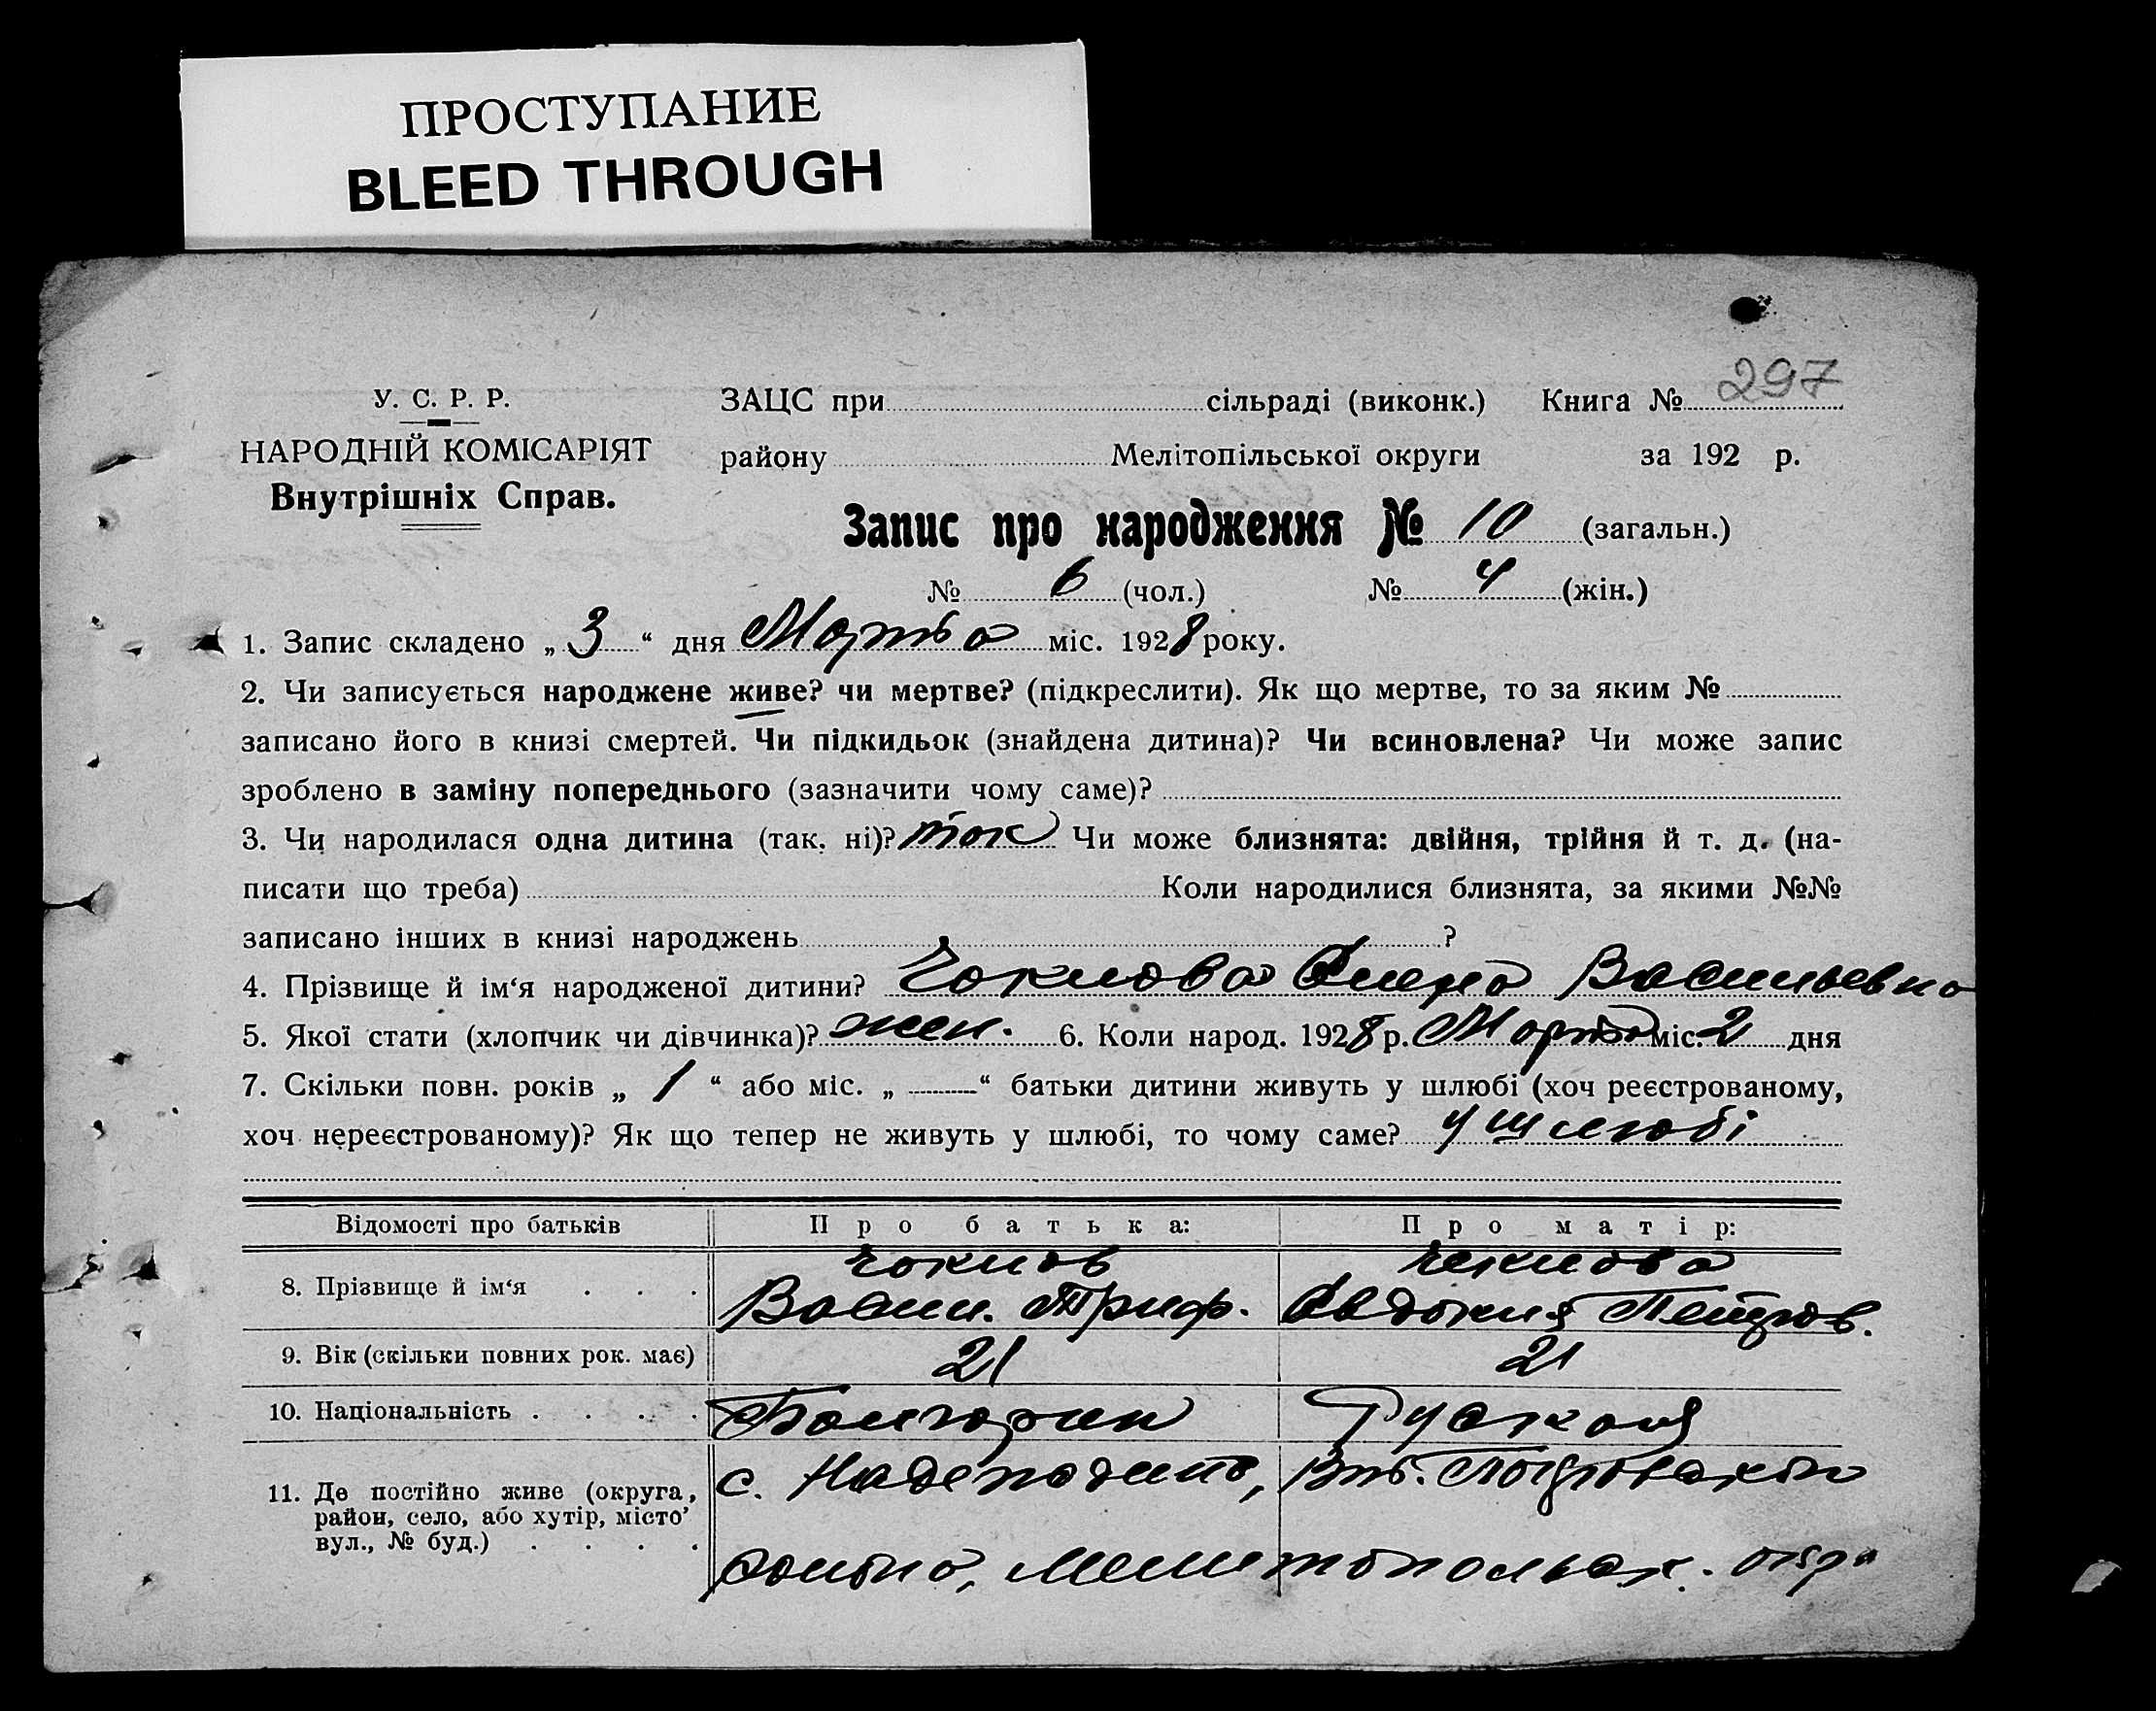 ПРОСТУПАНИЕ
BLEED THROUGH
297
У. С. Р. Р.
НАРОДНІЙ КОМІСАРІЯТ
Внутрішніх Справ.
ЗАЦС при сільраді (виконк.) Книга №
району Мелітопільської округи за 192 р.
Запис про народження № 10 (загальн.)
№ 6 (чол.) № 4 (жін.)
1. Запис складено „ 3 “ дня Марта міс. 1928 року.
2. Чи записується народжене живе? чи мертве? (підкреслити). Як що мертве, то за яким №
записано його в книзі смертей. Чи підкидьок (знайдена дитина)? Чи всиновлена? Чи може запис
зроблено в заміну попереднього (зазначити чому саме)?
3. Чи народилася одна дитина (так, ні)? так Чи може близнята: двійня, трійня й т. д. (на-
писати що треба) Коли народилися близнята, за якими №№
записано інших в книзі народжень ?
4. Прізвище й ім‘я народженої дитини? Чакилова Васильевна
5. Якої стати (хлопчик чи дівчинка)? жен. 6. Коли народ. 1928 р. Марта міс. 2 дня
7. Скільки повн. років „ 1 “ або міс. „ — “ батьки дитини живуть у шлюбі (хоч реєстрованому,
хоч нереєстрованому)? Як що тепер не живуть у шлюбі, то чому саме? у шлюбі
Відомості про батьків Про батька: Про матір:
8. Прізвище й ім‘я . . .
Васил. Триф. Евдокия Петров.
9. Вік (скільки повних рок. має) 21 21
10. Національність . . . . Болгарин Руская
11. Де постійно живе (округа,
район, село, або хутір, місто’
вул., № буд.) . . . .
с.
Мелитопольск. окр.